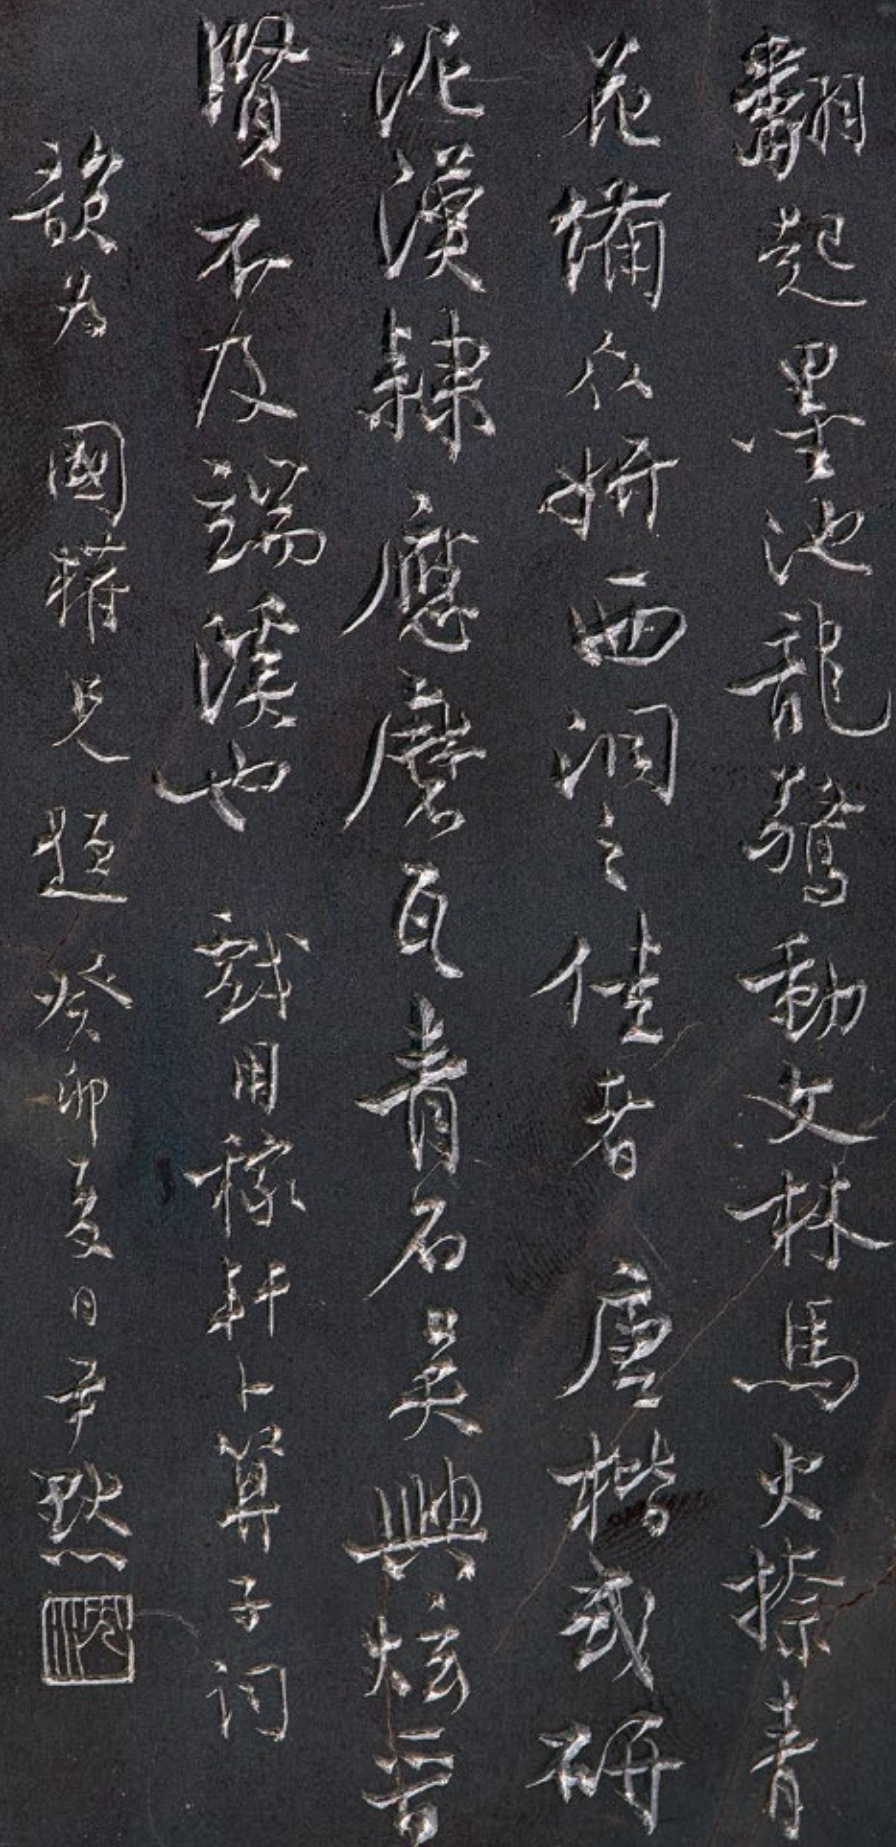 翻起墨池龍驚動文林馬火捺青
花備众妍西洞之佳者唐楷或研
泥漢隸應磨瓦青石吴興炫晋
賢不及端溪也戲用稼軒卜算子词
韻为國權兄題癸卯夏日尹默